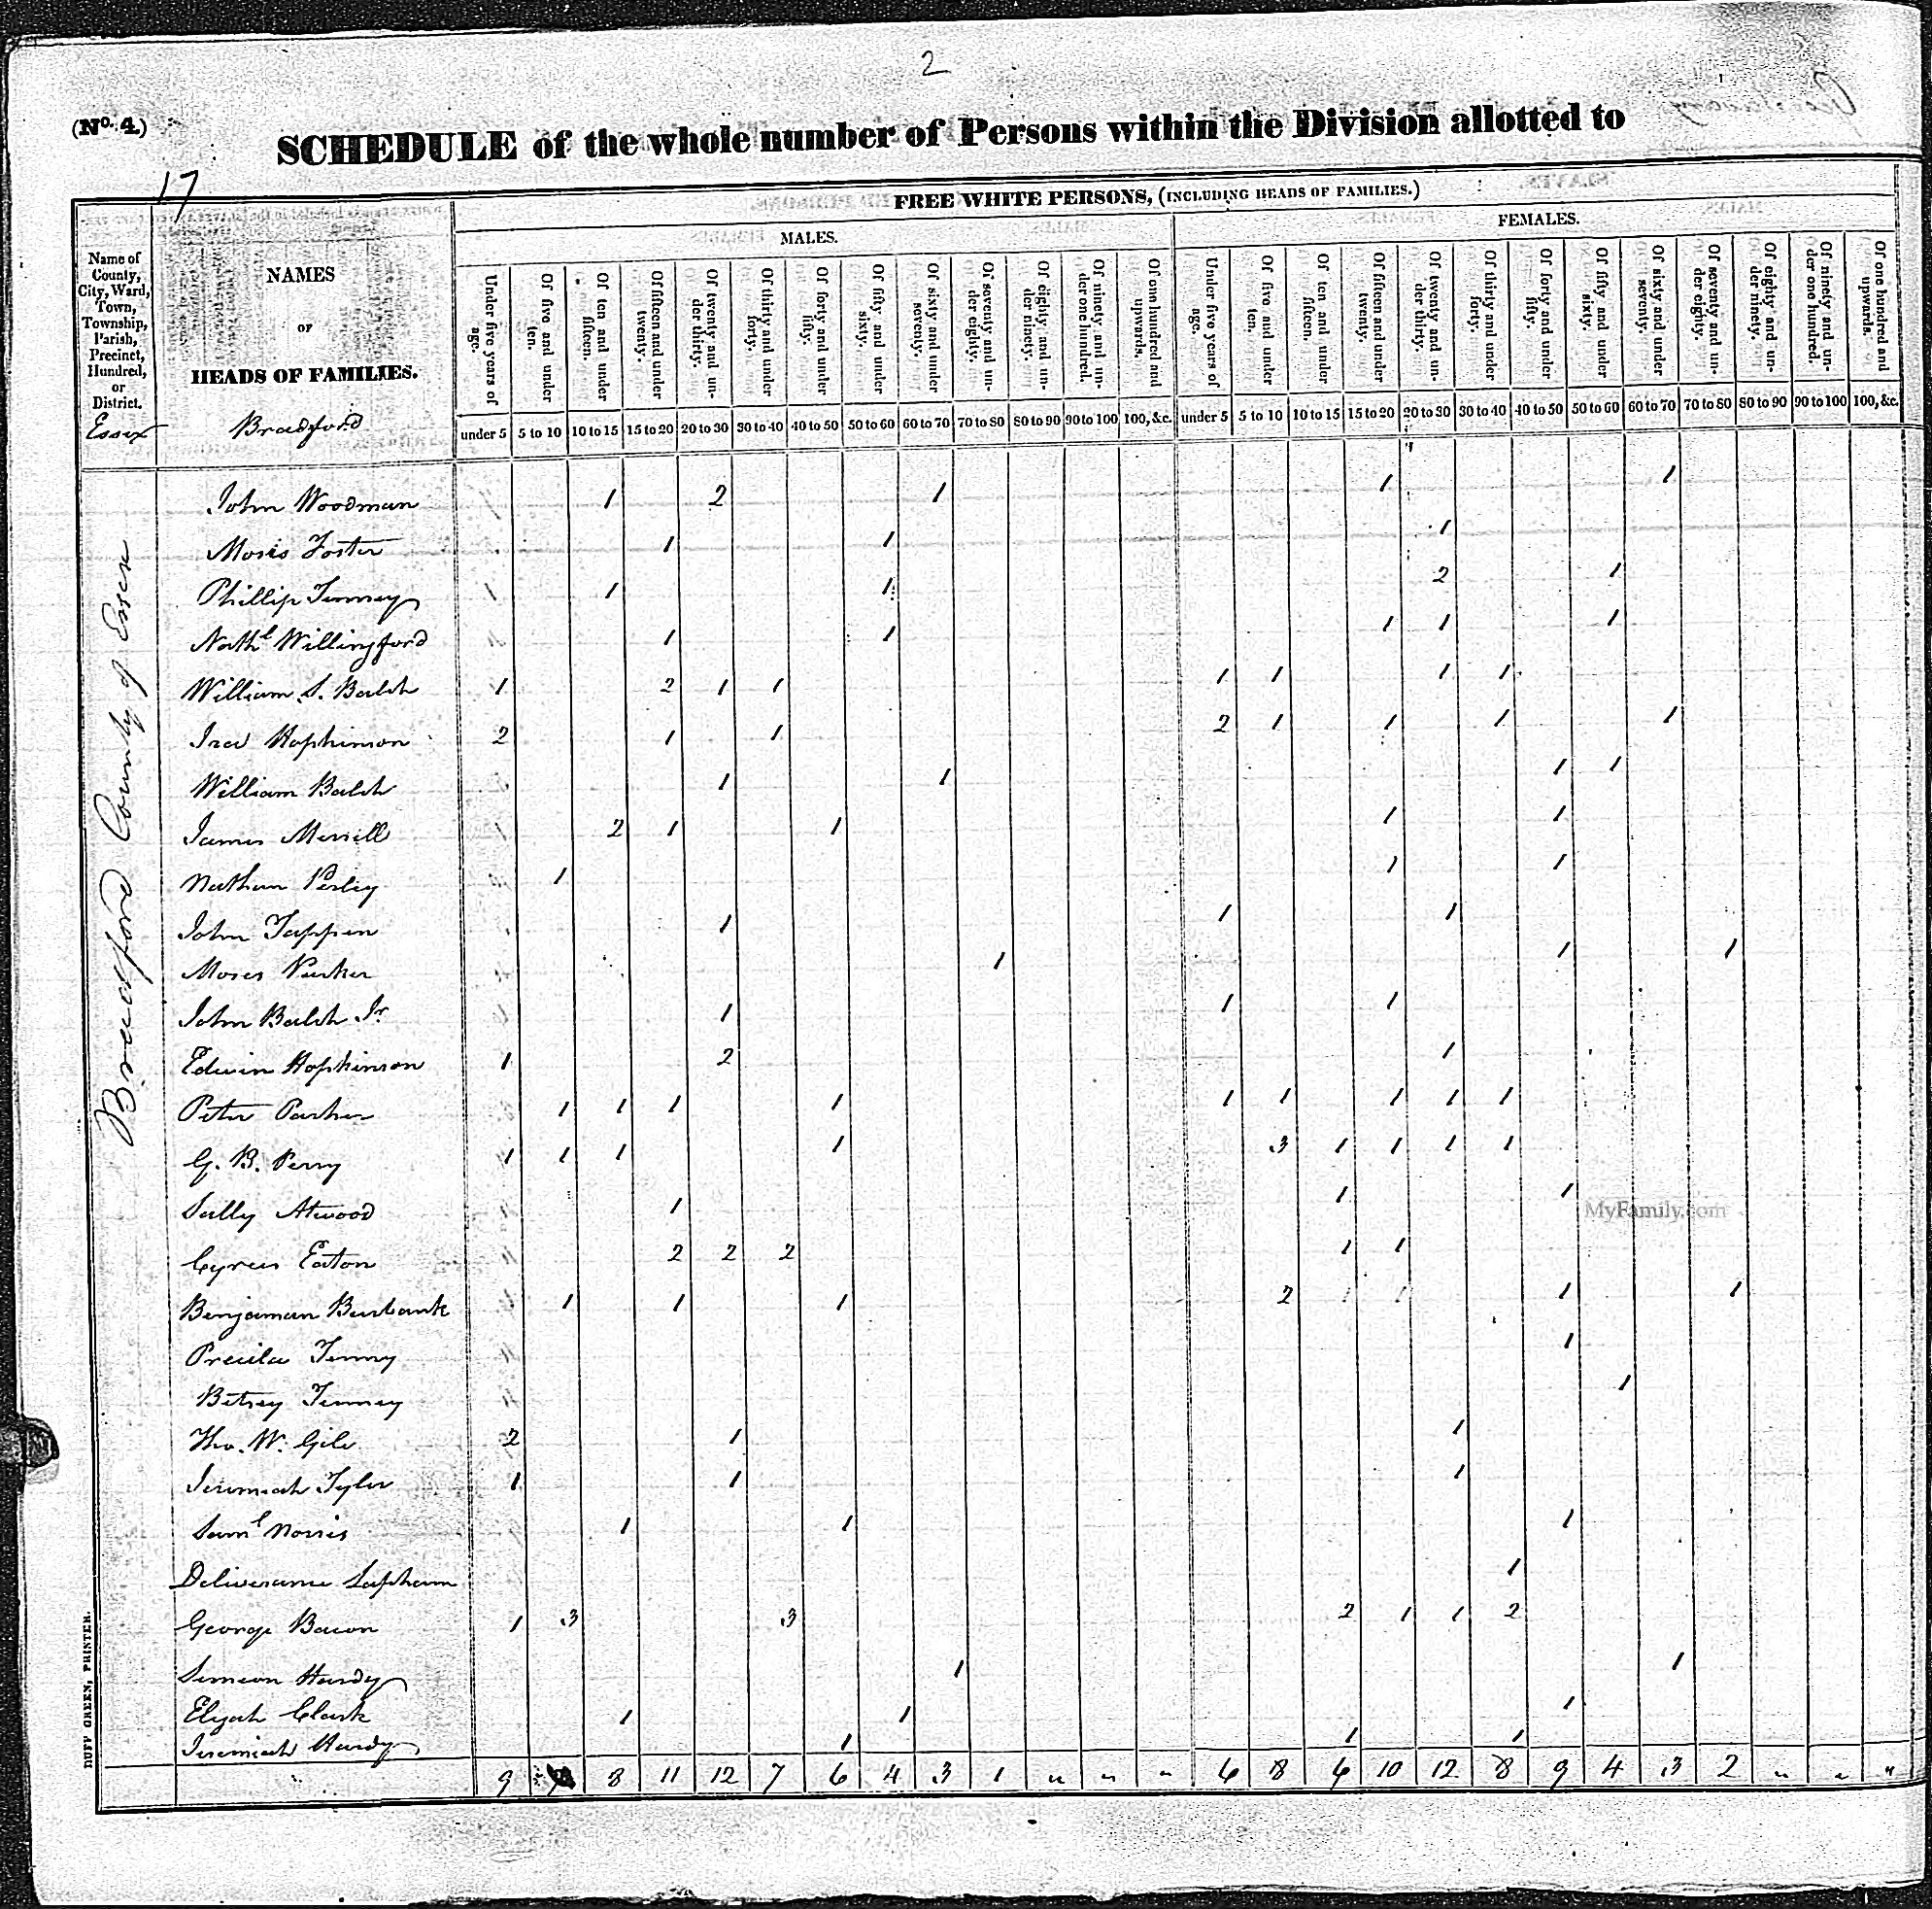 2
(No. 4.)
SCHEDULE of the whole number of Persons within the Division allotted to
17
FREE WHITE PERSONS, (INCLUDING HEADS OF FAMILIES.)
MALES. FEMALES.
Name of County, City, Ward, Town, Township, Parish, Precinct, Hundred, or District.
NAMES
OF
HEADS OF FAMILIES.
Under five years of age. Of five and under ten. Of ten and under fifteen. Of fifteen and under twenty. Of twenty and under thirty. Of thirty and under forty. Of forty and under fifty. Of fifty and under sixty. Of sixty and under seventy. Of seventy and under eighty. Of eighty and under ninety. Of ninety and under one hundred. Of one hundred and upwards. Under five years of age. Of five and under ten. Of ten and under fifteen. Of fifteen and under twenty. Of twenty and under thirty. Of thirty and under forty. Of forty and under fifty. Of fifty and under sixty. Of sixty and under seventy. Of seventy and under eighty. Of eighty and under ninety. Of ninety and under one hundred. Of one hundred and upwards.
Essex Bradford under 5 5 to 10 10 to 15 15 to 20 20 to 30 30 to 40 40 to 50 50 to 60 60 to 70 70 to 80 80 to 90 90 to 100 100, &c. under 5 5 to 10 10 to 15 15 to 20 20 to 30 30 to 40 40 to 50 50 to 60 60 to 70 70 to 80 80 to 90 90 to 100 100, &c.
Bradford County of Essex
John Woodman 1 2 1 1 1
Moses Foster 1 1 1
Phillip Tenney 1 1 2 1
Nathl Willingford 1 1 1 1 1
William S. Balch 1 2 1 1 1 1 1 1
Ira Hopkinson 2 1 1 2 1 1 1 1
William Balch 1 1 1 1
James Merrill 2 1 1 1 1
Nathan Perley 1 1 1
John Tappen 1 1 1
Moses Parker 1 1 1
John Balch Jr. 1 1 1
Edwin Hopkinson 1 2 1
Peter Parker 1 1 1 1 1 1 1 1 1
G. B. Perry 1 1 1 1 3 1 1 1 1
Sally Atwood 1 1 1
Cyrus Eaton 2 2 2 1 1
Benjaman Burbank 1 1 1 2 1 1
Precila Tenny 1
Betsey Tenney 1
Tho. W. Gile 2 1 1
Jeremiah Tyler 1 1 1
Saml Norris 1 1 1
Deliverance Lapham 1
George Bacon 1 3 3 2 1 1 2
Simeon Hardy 1 1
Elijah Clark 1 1 1
Jeremiah Hardy 1 1 1
9 8 11 12 7 6 4 3 1 " " " 6 8 6 10 12 8 9 4 3 2 " " "
DUFF GREEN, PRINTER.
MyFamily.com